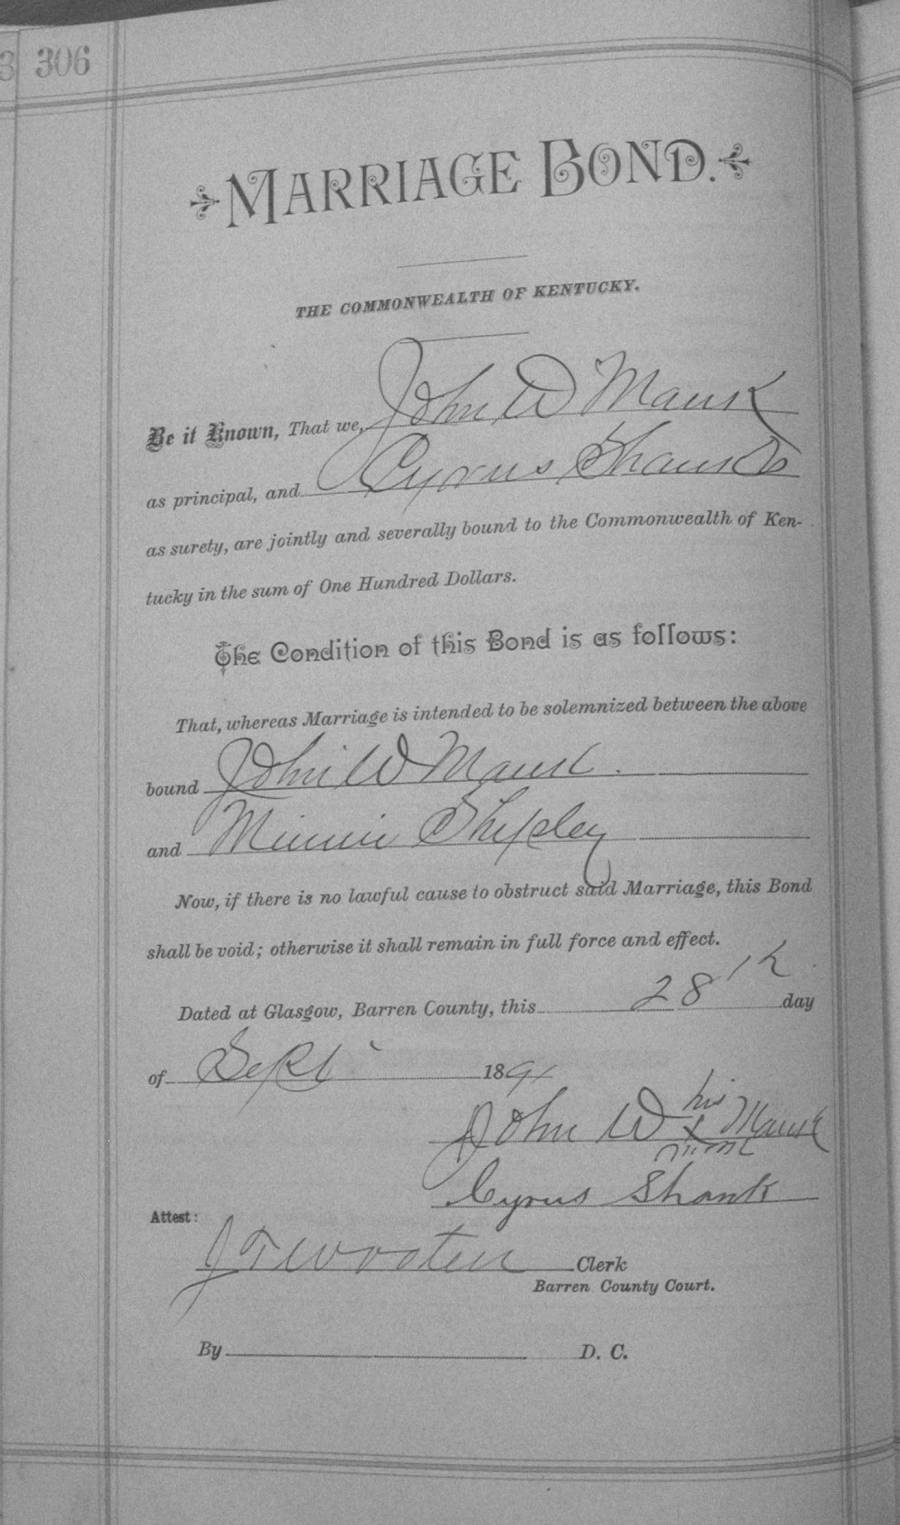 3 306
MARRIAGE BOND.
THE COMMONWEALTH OF KENTUCKY.
Be it Known, That we, John W Mausk
as principal, and Cyrus Shanks
as surety, are jointly and severally bound to the Commonwealth of Ken-
tucky in the sum of One Hundred Dollars.
The Condition of this Bond is as follows:
That, whereas Marriage is intended to be solemnized between the above
bound John W Mausk
and Minnie Shipley
Now, if there is no lawful cause to obstruct said Marriage, this Bond
shall be void; otherwise it shall remain in full force and effect.
Dated at Glasgow, Barren County, this 28th day
of Sept 1891
his
John W X Mausk
mark
Cyrus Shank
Attest:
J T Wooten Clerk
Barren County Court.
By D. C.